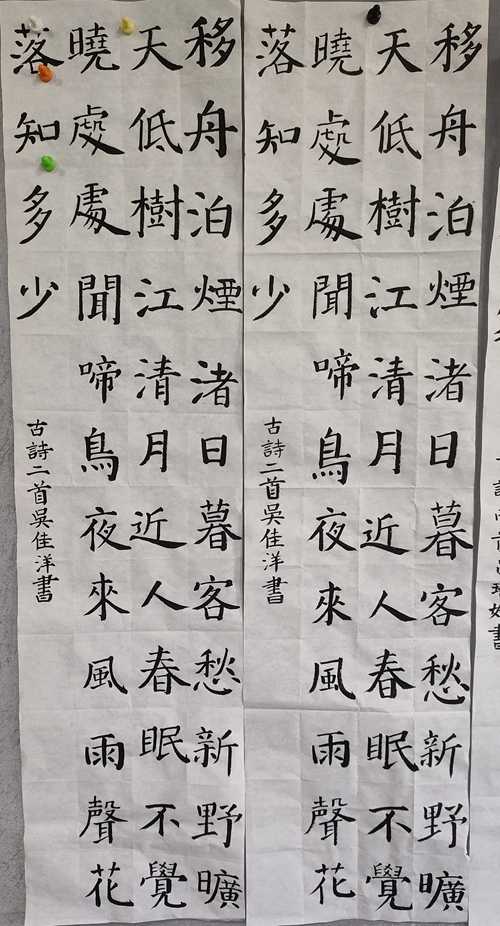 移舟泊煙渚日暮客愁新野曠
天低樹江清月近人春眠不覺
曉處處聞啼鳥夜來風雨聲花
落知多少
古詩二首吳佳洋書
移舟泊煙渚日暮客愁新野曠
天低樹江清月近人春眠不覺
曉處處聞啼鳥夜來風雨聲花
落知多少
古詩二首吳佳洋書